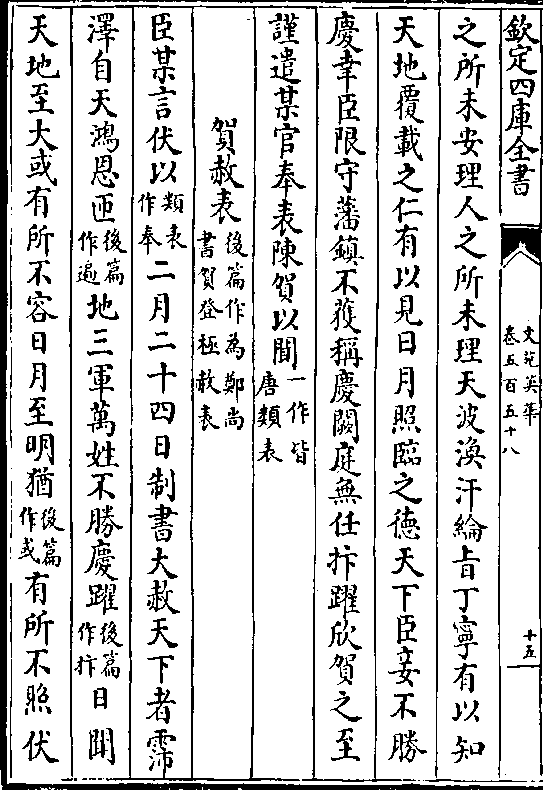 欽定四庫全書
文苑英華
卷五百五十八
十五
之所未安理人之所未理天波渙汗綸㫖丁寧有以知
天地覆載之仁有以見日月照臨之德天下臣妾不勝
慶幸臣限守藩鎮不獲稱慶闕庭無任抃躍欣賀之至
謹遣某官奉表陳賀以聞一作皆唐類表
賀赦表後篇作為鄭尚書賀登極赦表
臣某言伏以類表作奉二月二十四日制書大赦天下者霈
澤自天鴻恩匝後篇作遍地三軍萬姓不勝慶躍後篇作抃日聞
天地至大或有所不容日月至明猶後篇作或有所不照伏